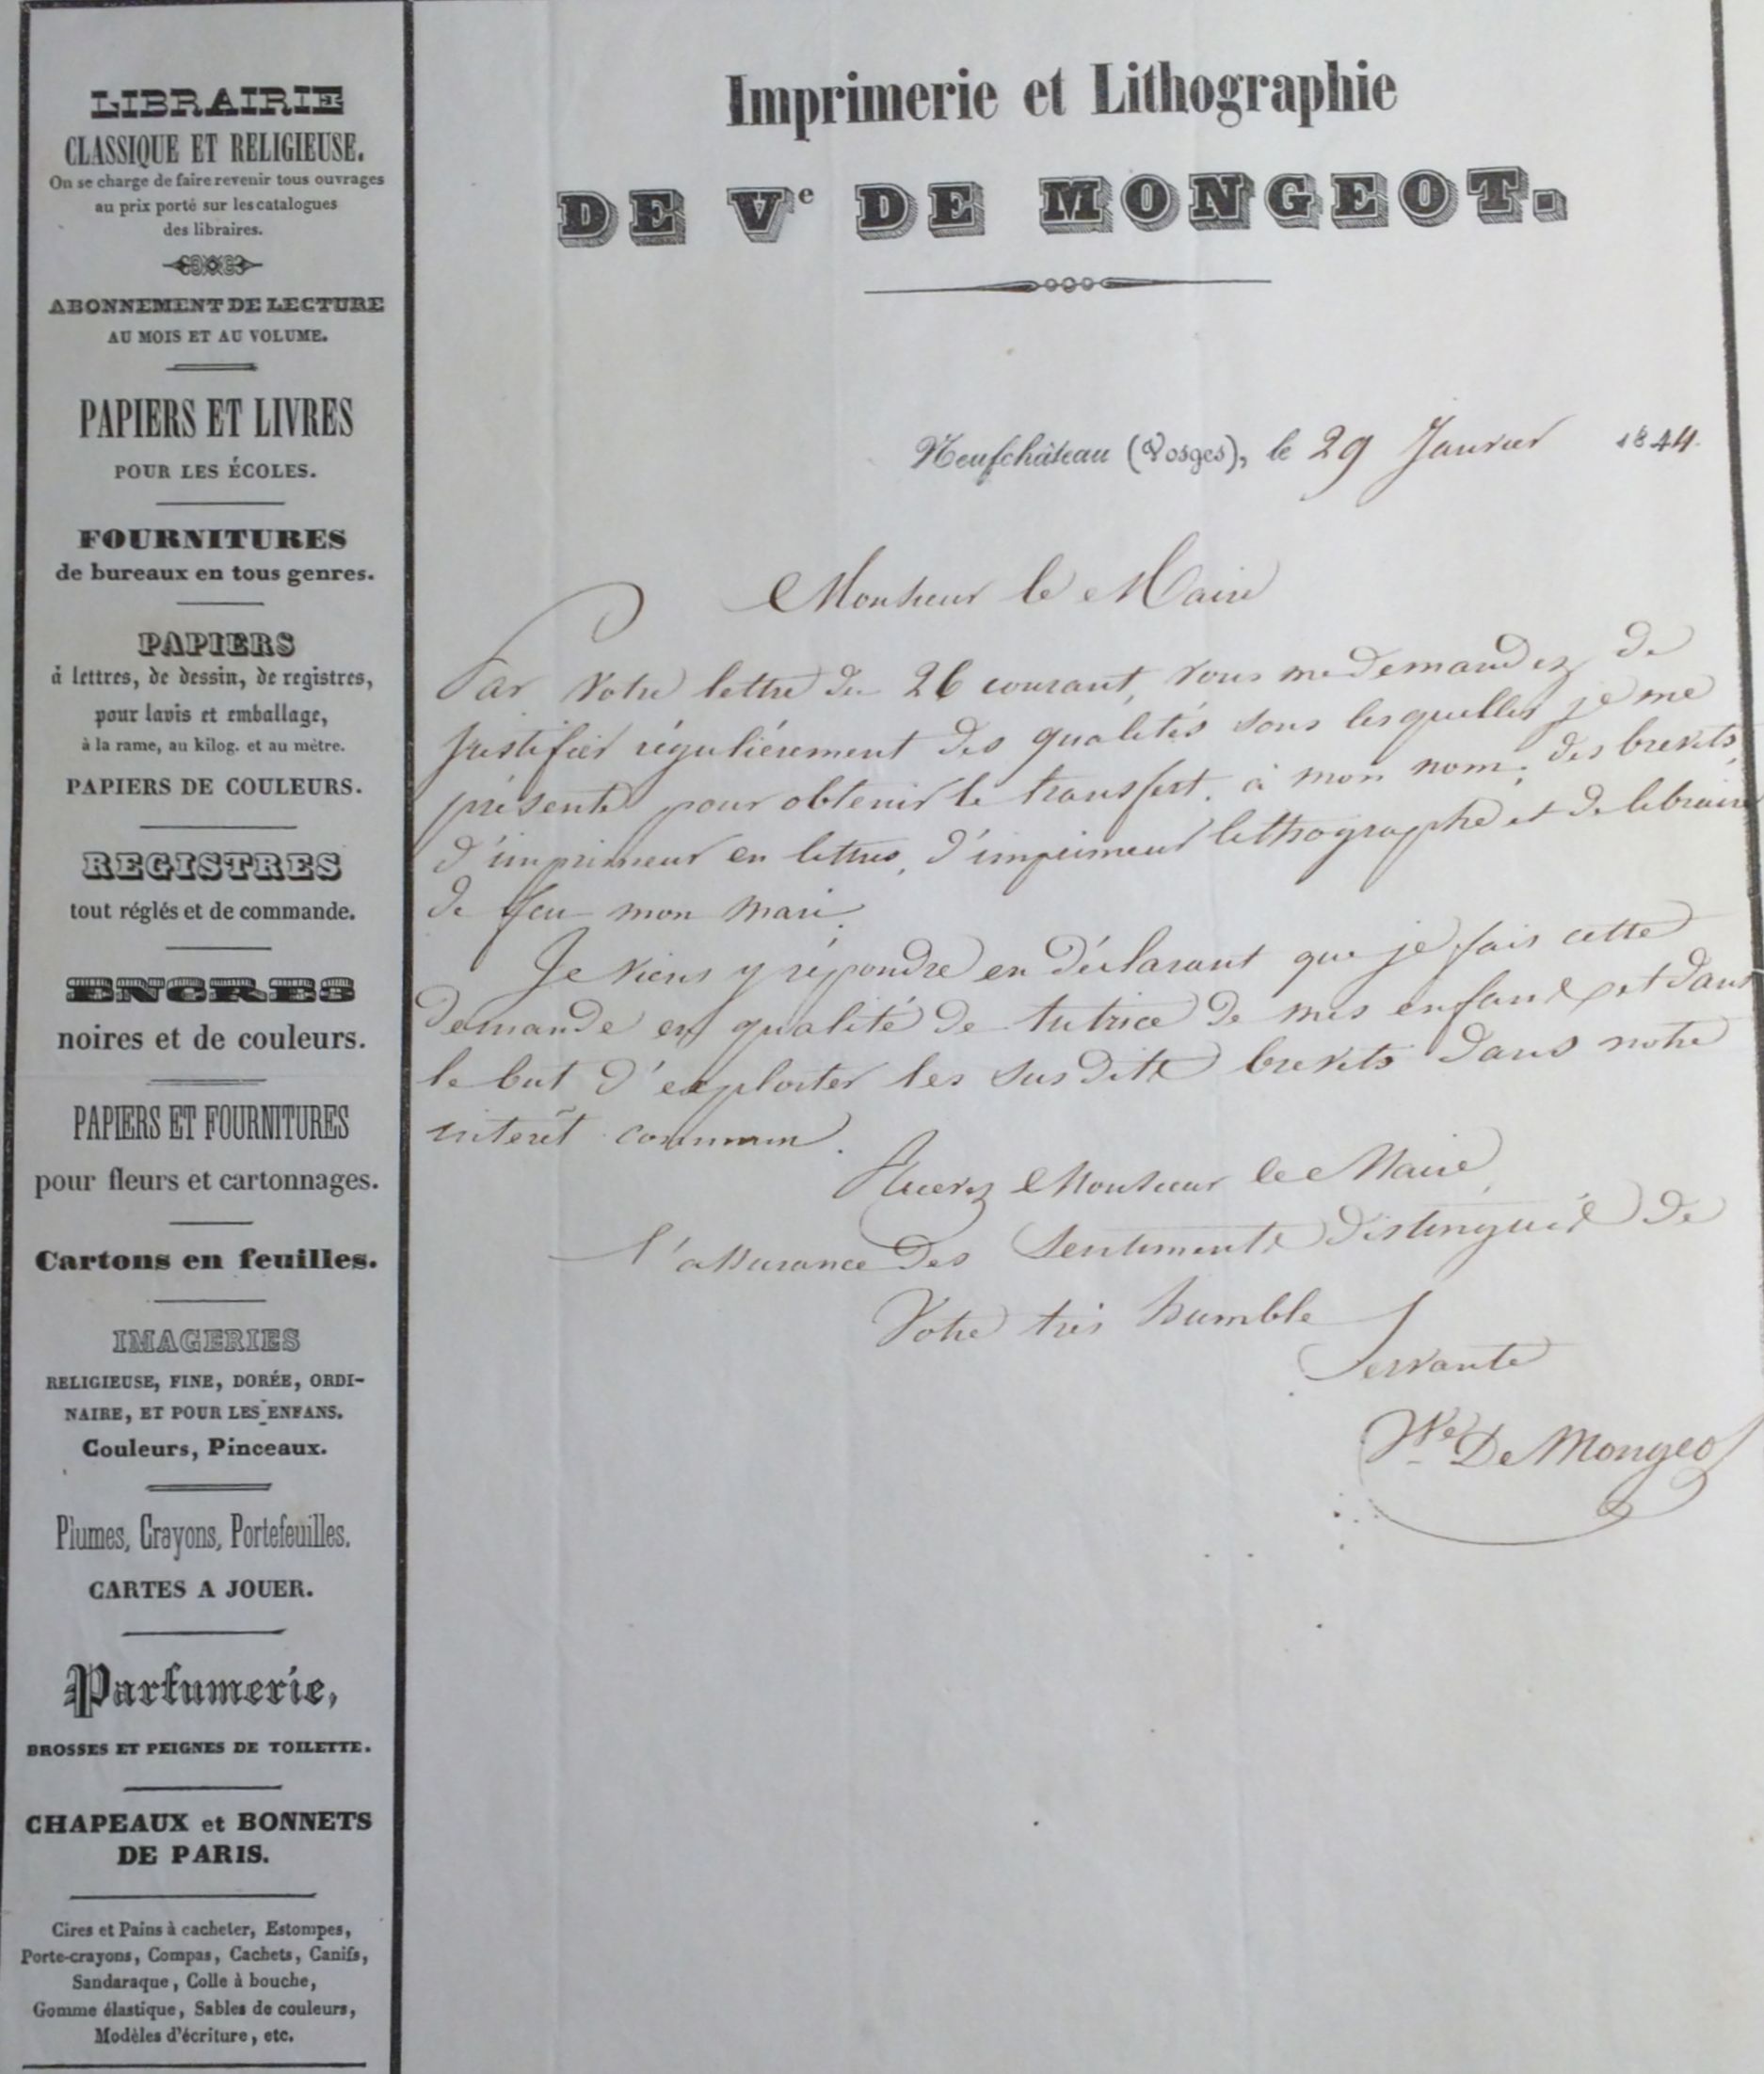 LIBRAIRIE
CLASSIQUE ET RELIGIEUSE.
On se charge de faire revenir tous ouvrages
au prix porté sur les catalogues
des libraires.
ABONNEMENT DE LECTURE
AU MOIS ET AU VOLUME.
PAPIERS ET LIVRES
POUR LES ÉCOLES.
FOURNITURES
de bureaux en tous genres.
PAPIERS
à lettres, de dessin, de registres,
pour lavis et emballage,
à la rame, au kilog. et au mètre.
PAPIERS DE COULEURS.
REGISTRES
tout réglés et de commande.
ENCRES
noires et de couleurs.
PAPIERS ET FOURNITURES
pour fleurs et cartonnages.
Cartons en feuilles.
IMAGERIES
RELIGIEUSE, FINE, DORÉE, ORDI-
NAIRE, ET POUR LES ENFANS.
Couleurs, Pinceaux.
Plumes, Crayons, Portefeuilles.
CARTES A JOUER.
Parfumerie,
BROSSES ET PEIGNES DE TOILETTE.
CHAPEAUX et BONNETS
DE PARIS.
Cires et Pains à cacheter, Estompes,
Porte-crayons, Compas, Cachets, Canifs,
Sandaraque, Colle à bouche,
Gomme élastique, Sables de couleurs,
Modèles d'écriture, etc.
Imprimerie et Lithographie
DE Ve DE MONGEOT.
Neufchâteau (Vosges), le 29 Janvier 1844.
Monsieur le Maire
Par votre lettre du 26 courant, vous me demandez de
justifier régulièrement des qualités sous lesquelles je me
présente pour obtenir le transfert à mon nom, des brevets
d'imprimeur en lettres, d'imprimeur lithographe et de libraire
de feu mon mari.
Je viens y répondre en déclarant que je fais cette
demande en qualité de tutrice de mes enfans et dans
le but d'exploiter les susdits brevets dans notre
intérêt commun.
Agréez Monsieur le Maire,
l'assurance des sentiments distingués de
Votre très humble
Servante
Ve De Mongeot